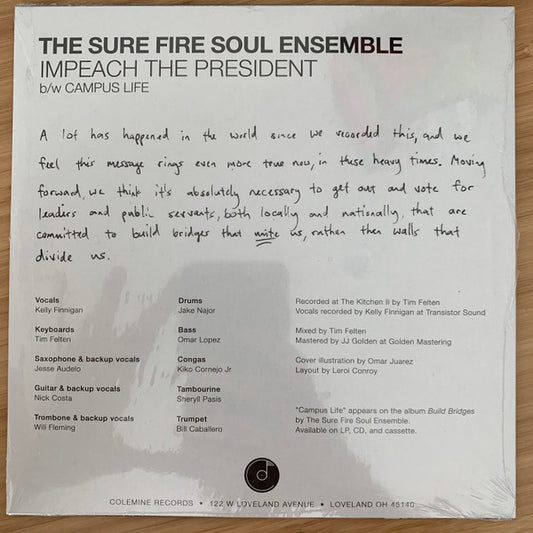 THE SURE FIRE SOUL ENSEMBLE
IMPEACH THE PRESIDENT
b/w CAMPUS LIFE
A lot has happened in the world since we recorded this, and we
feel this message rings even more true now, in these heavy times. Moving
forward, we think it's absolutely necessary to get out and vote for
leaders and public servants, both locally and nationally, that are
committed to build bridges that unite us, rather then walls that
divide us.
Vocals
Kelly Finnigan
Keyboards
Tim Felten
Saxophone & backup vocals
Jesse Audelo
Guitar & backup vocals
Nick Costa
Trombone & backup vocals
Will Fleming
Drums
Jake Najor
Bass
Omar Lopez
Congas
Kiko Cornejo Jr
Tambourine
Sheryll Pasis
Trumpet
Bill Caballero
Recorded at The Kitchen II by Tim Felten
Vocals recorded by Kelly Finnigan at Transistor Sound
Mixed by Tim Felten
Mastered by JJ Golden at Golden Mastering
Cover illustration by Omar Juarez
Layout by Leroi Conroy
"Campus Life" appears on the album Build Bridges
by The Sure Fire Soul Ensemble.
Available on LP, CD, and cassette.
COLEMINE RECORDS • 122 W LOVELAND AVENUE • LOVELAND OH 45140